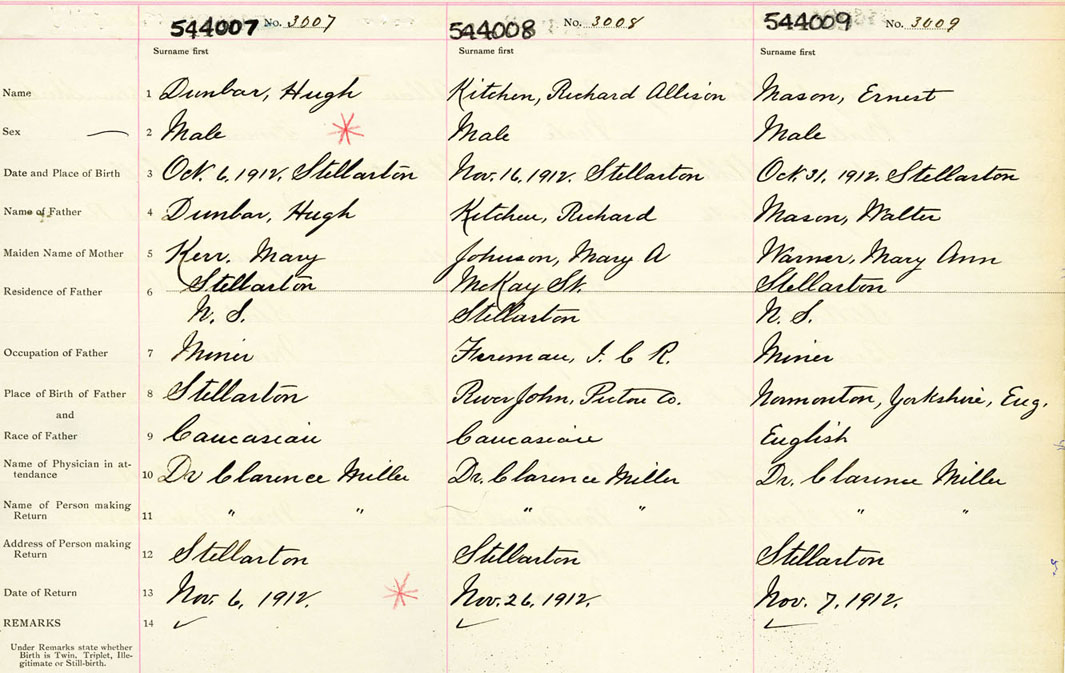 544007 No. 3007 544008 No. 3008 544009 No. 3009
Surname first Surname first Surname first
Name 1 Dunbar, Hugh Kitchen, Richard Allison Mason, Ernest
Sex 2 Male Male Male
Date and Place of Birth 3 Oct. 6, 1912. Stellarton Nov. 16, 1912. Stellarton Oct. 31, 1912. Stellarton
Name of Father 4 Dunbar, Hugh Kitchen, Richard Mason, Walter
Maiden Name of Mother 5 Kerr, Mary Johnson, Mary A Warner, Mary Ann
Residence of Father 6 Stellarton McKay St. Stellarton
N. S. Stellarton N. S.
Occupation of Father 7 Miner Fireman, I. C. R. Miner
Place of Birth of Father 8 Stellarton River John, Pictou Co. Normonton, Yorkshire, Eng.
and
Race of Father 9 Caucasian Caucasian English
Name of Physician in at-
tendance 10 Dr Clarence Miller Dr. Clarence Miller Dr. Clarence Miller
Name of Person making
Return 11 " " " " " "
Address of Person making
Return 12 Stellarton Stellarton Stellarton
Date of Return 13 Nov. 6, 1912. Nov. 26, 1912. Nov. 7, 1912.
REMARKS 14
Under Remarks state whether
Birth is Twin, Triplet, Ille-
gitimate or Still-birth.